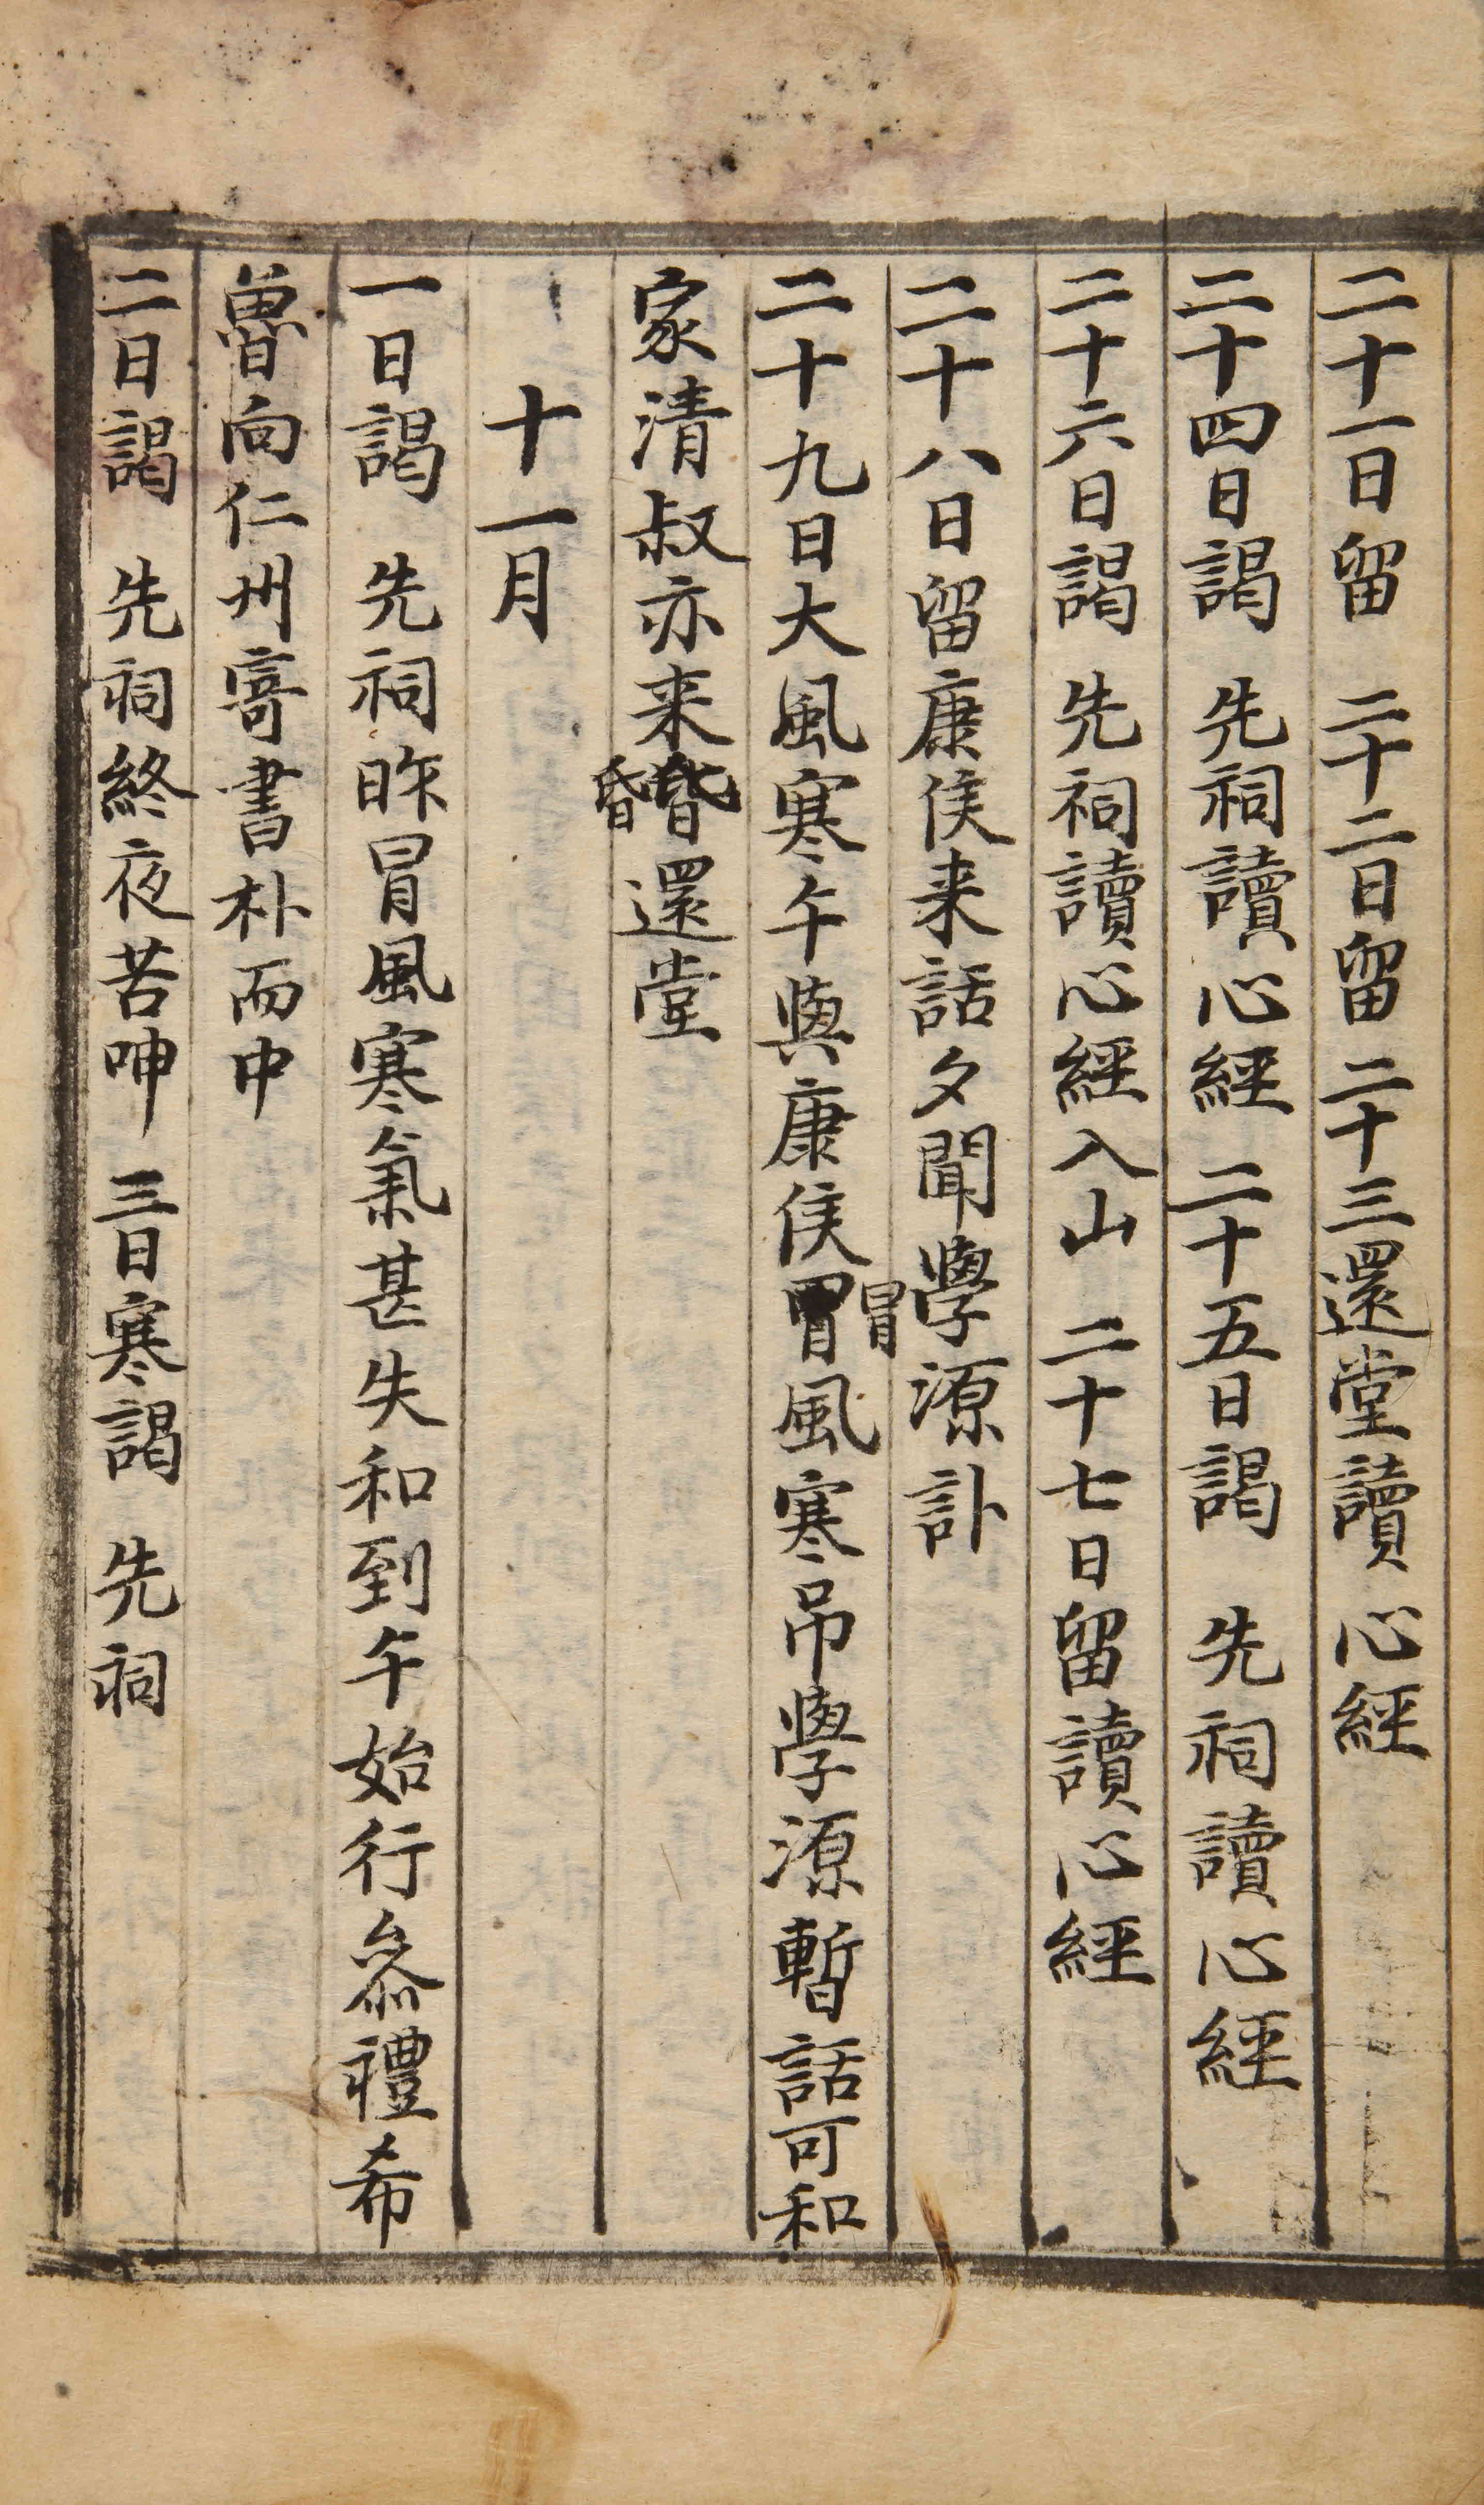 二十一日留　二十二日留　二十三還堂讀心經
二十四日謁　先祠讀心經　二十五日謁　先祠讀心經
二十六日謁　先祠讀心經入山　二十七日留讀心經
二十八日留康侯来話夕聞學源訃
二十九日大風寒午與康侯冒風寒吊學源暫話可和
冒
家清叔亦来昏還堂
昏
十一月
一日謁　先祠昨冒風寒氣甚失和到午始行叅禮希
魯向仁州寄書朴而中
二日謁　先祠終夜苦呻　三日寒謁　先祠